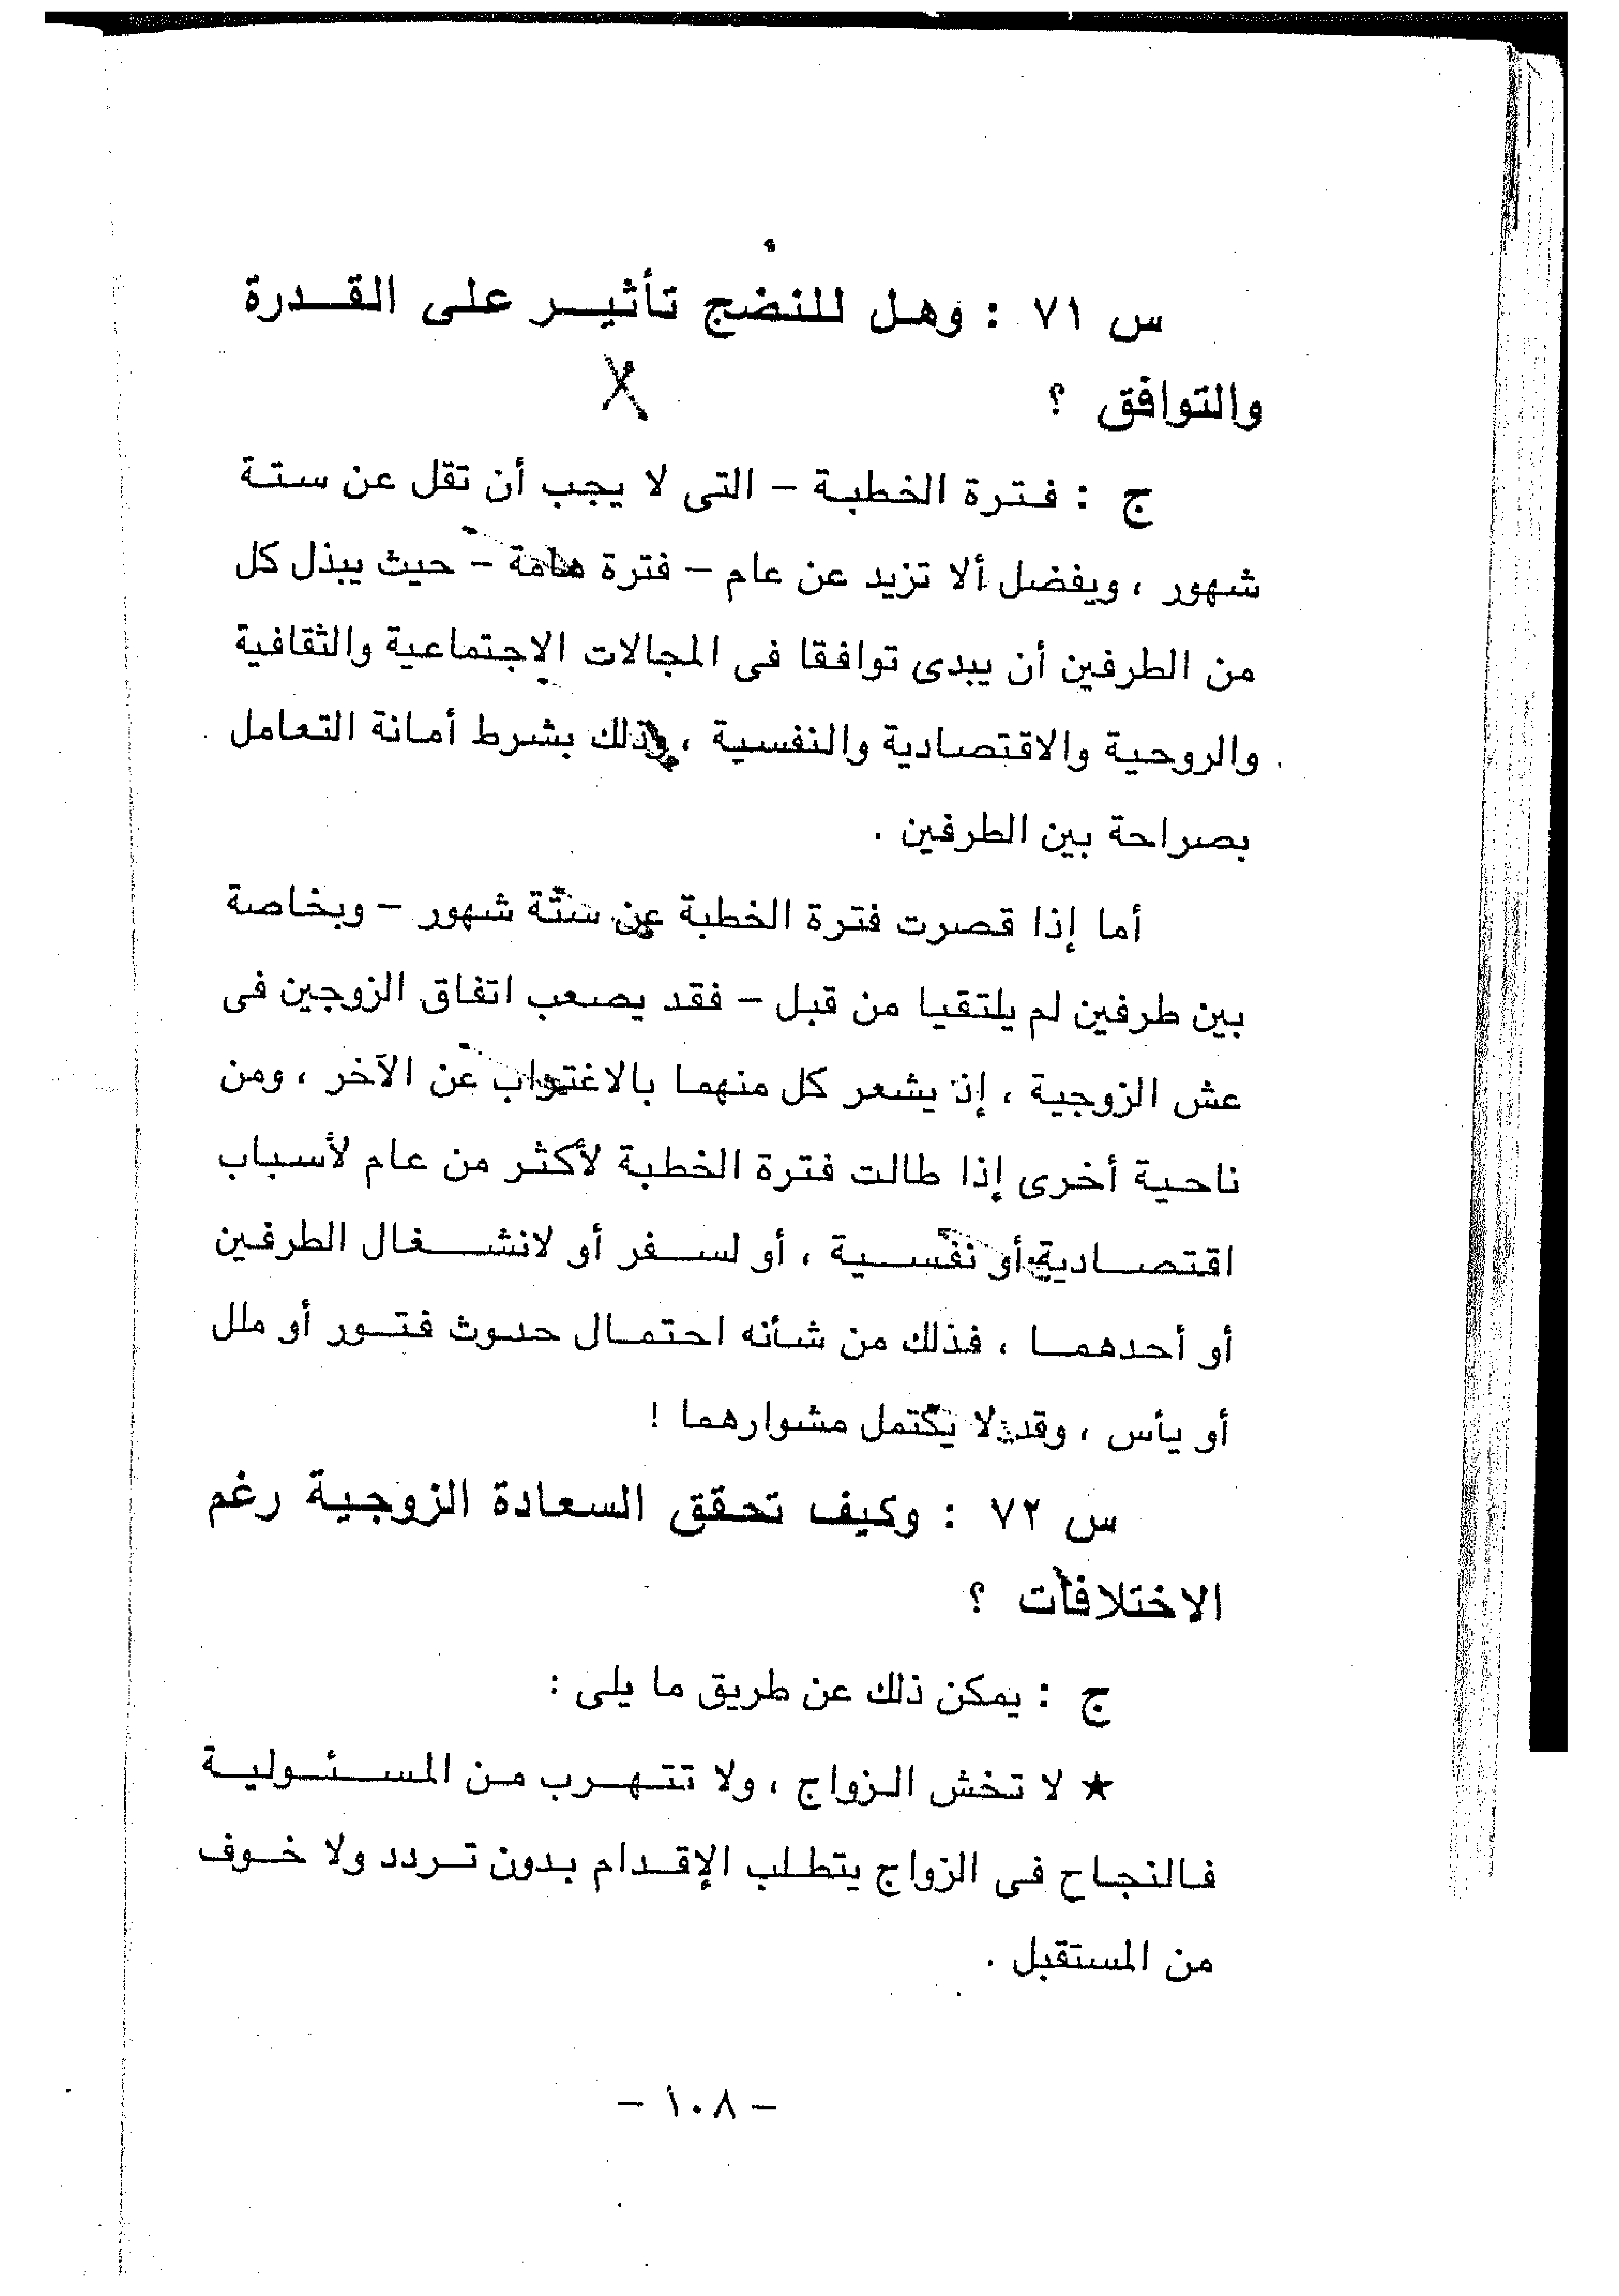 س ٧١ : وهل للنضج تأثير على القدرة
والتوافق ؟
ج : فترة الخطبة – التى لا يجب أن تقل عن ستة
شهور ، ويفضل ألا تزيد عن عام – فترة هامة – حيث يبذل كل
من الطرفين أن يبدى توافقا فى المجالات الاجتماعية والثقافية
والروحية والاقتصادية والنفسية ، وذلك بشرط أمانة التعامل
بصراحة بين الطرفين .
أما إذا قصرت فترة الخطبة عن ستة شهور – وبخاصة
بين طرفين لم يلتقيا من قبل – فقد يصعب اتفاق الزوجين فى
عش الزوجية ، إذ يشعر كل منهما بالاغتراب عن الآخر ، ومن
ناحية أخرى إذا طالت فترة الخطبة لأكثر من عام لأسباب
اقتصادية أو نفسية ، أو لسفر أو لانشغال الطرفين
أو أحدهما ، فذلك من شأنه احتمال حدوث فتور أو ملل
أو يأس ، وقد لا يكتمل مشوارهما !
س ٧٢ : وكيف تحقق السعادة الزوجية رغم
الاختلافات ؟
ج : يمكن ذلك عن طريق ما يلى :
★ لا تخش الزواج ، ولا تتهرب من المسئولية
فالنجاح فى الزواج يتطلب الإقدام بدون تردد ولا خوف
من المستقبل .
– ١٠٨ –